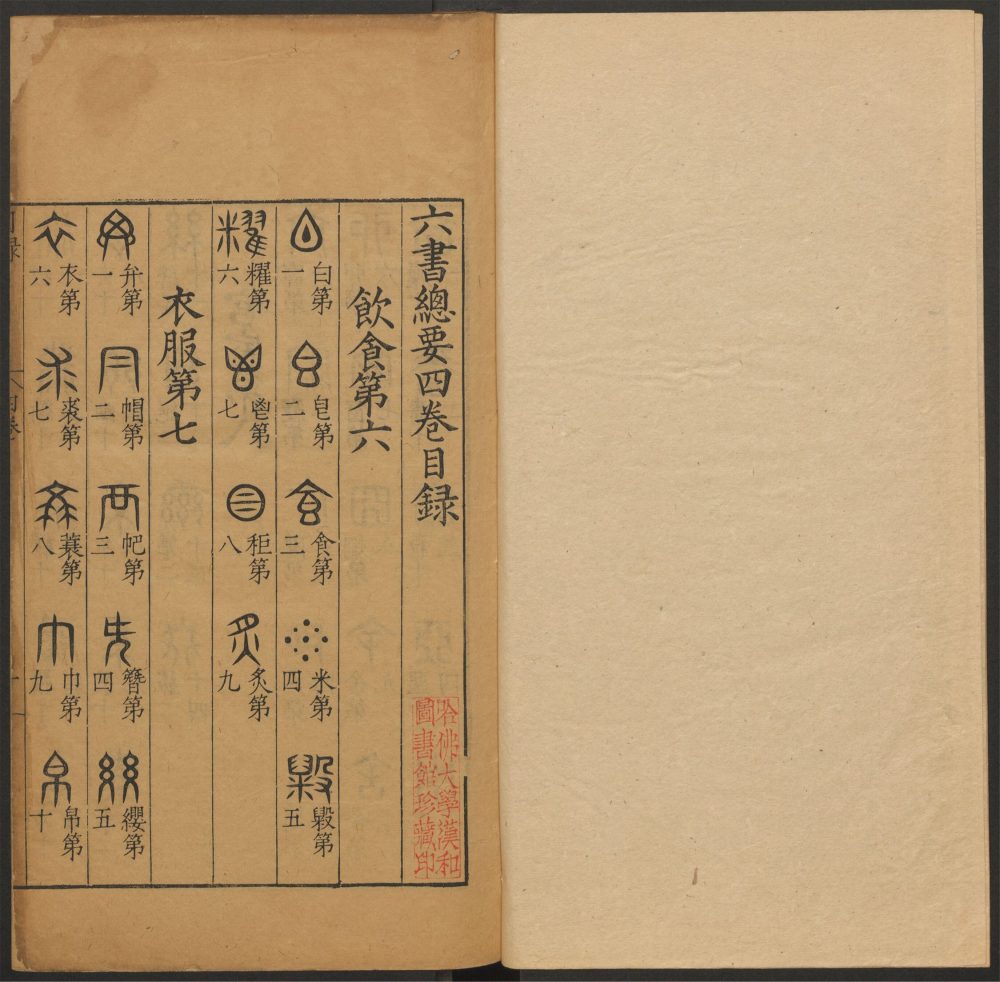 六書總要四卷目録
飲食第六
白第一
皀第二
食第三
米第四
毇第五
糶第六
鬯第七
秬第八
炙第九
衣服第七
弁第一
帽第二
帊第三
簪第四
纓第五
衣第六
裘第七
蓑第八
巾第九
帛第十
哈佛大學漢和
圖書館珍藏印